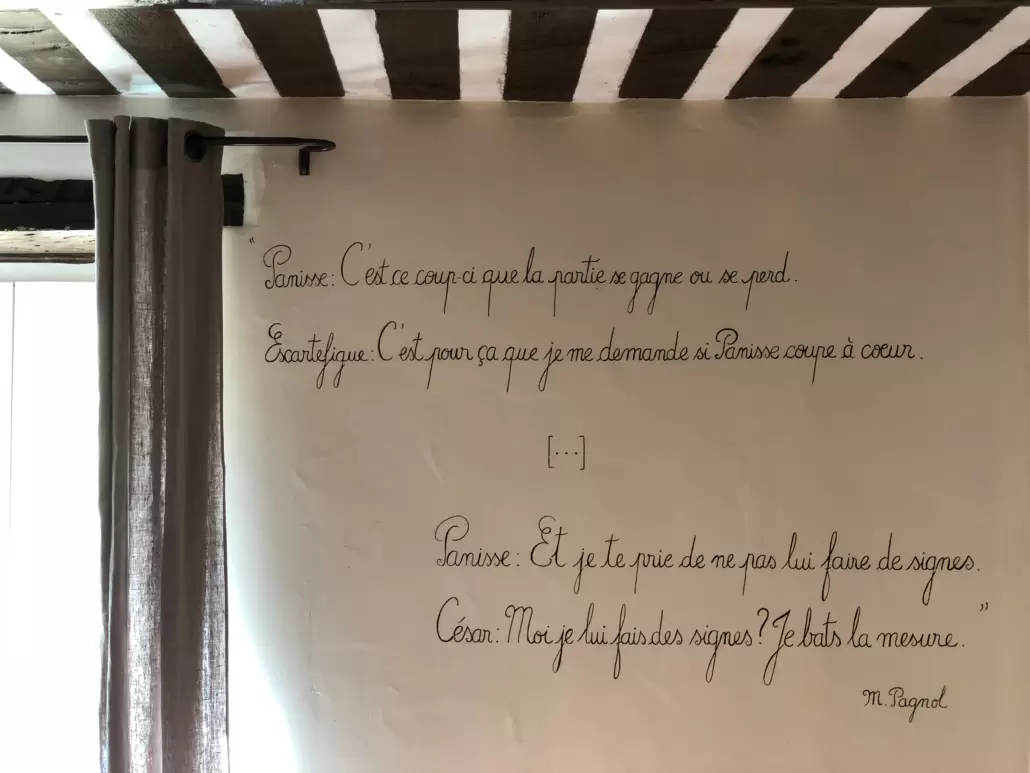 " Panisse : C'est ce coup-ci que la partie se gagne ou se perd.
Escartefigue : C'est pour ça que je me demande si Panisse coupe à coeur.
[...]
Panisse : Et je te prie de ne pas lui faire de signes.
César : Moi je lui fais des signes ? Je bats la mesure. "
M. Pagnol